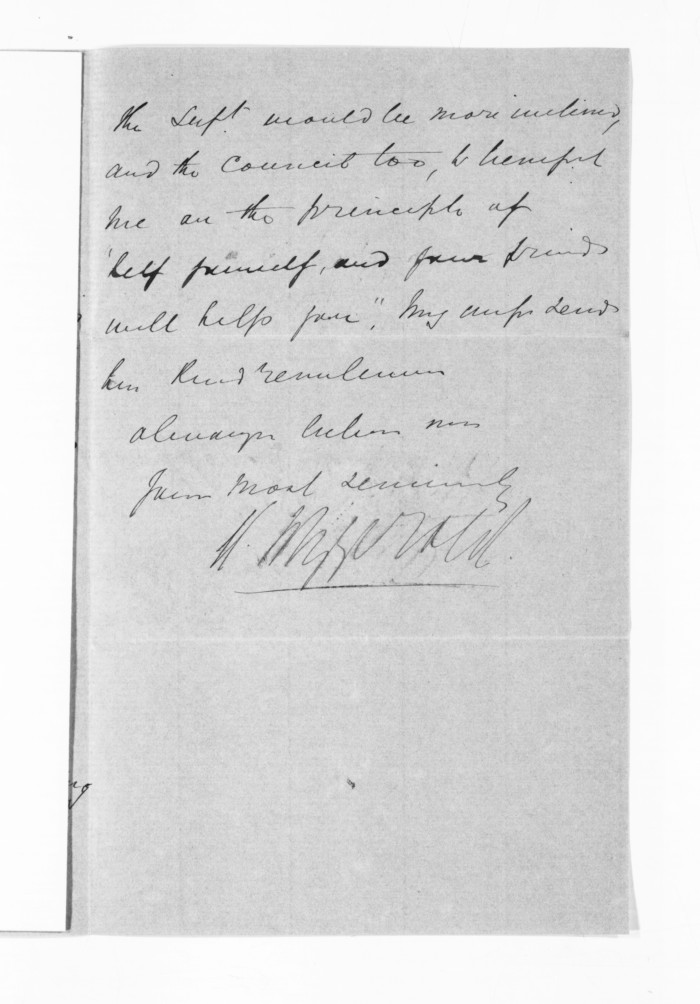 the Supt would be more inclined,
and the Council too, to benefit
me on the principle of
"help yourself, and your friends
will help you". My wife sends
her kind remembrances
always believe me
yours most sincerely
H. Fitzgerald.